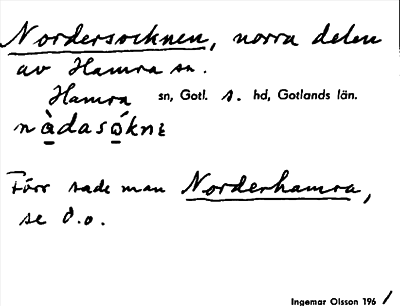 Nordersocknen, norra delen
av Hamra sn.
Hamra sn, Gotl. s. hd, Gotlands län.
nàdasókne
Förr sade man Norderhamra,
se d.o.
Ingemar Olsson 1961